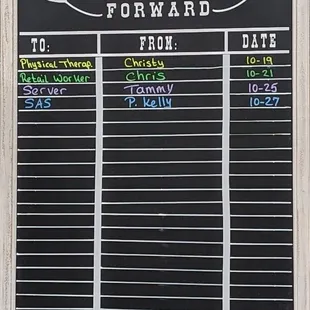 FORWARD
TO: FROM: DATE
Physical Therap. Christy 10-19
Retail Worker Chris 10-21
Server Tammy 10-25
SAS P. Kelly 10-27